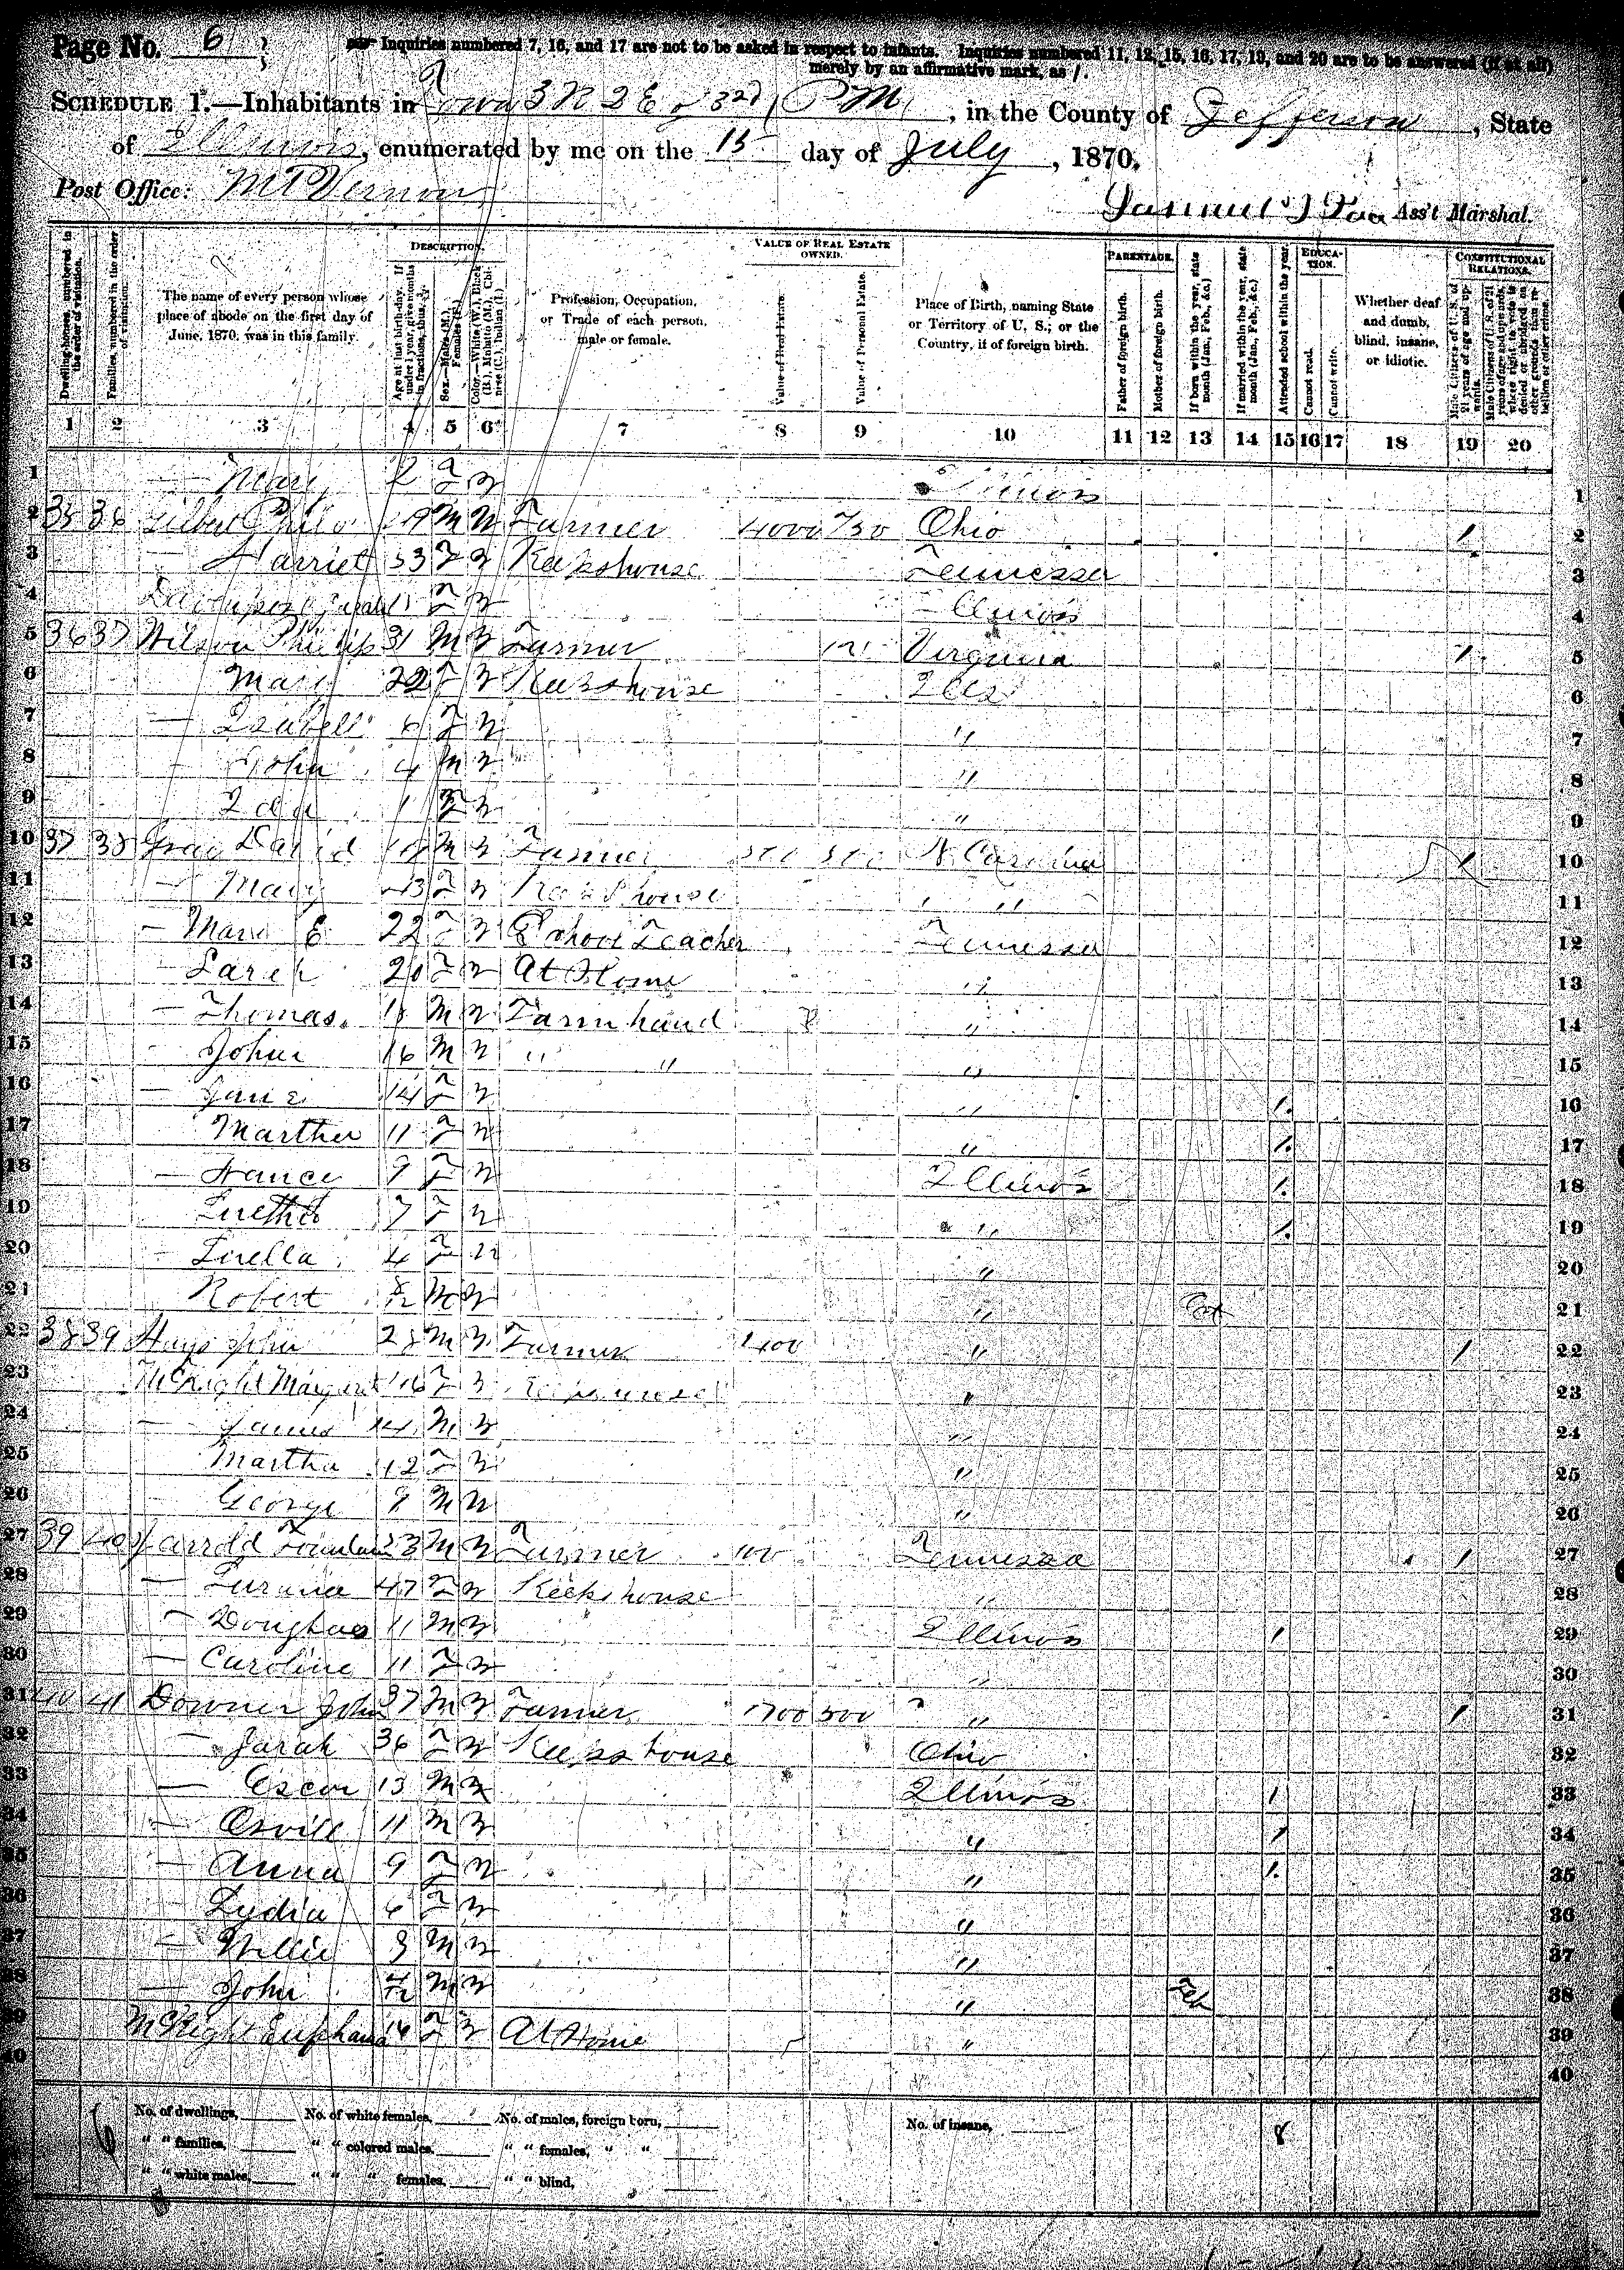 Page No. 6
Inquiries numbered 7, 16, and 17 are not to be asked in respect to infants. Inquiries numbered 11, 12, 15, 16, 17, 19, and 20 are to be answered (if at all)
merely by an affirmative mark, as /.
SCHEDULE 1.—Inhabitants in Town 3 N 2 E of 3rd P M, in the County of Jefferson, State
of Illinois, enumerated by me on the 15 day of July, 1870.
Post Office: Mt Vernon
Samuel Ass't Marshal.
Dwelling-houses, numbered in the order of visitation.
Families, numbered in the order of visitation.
The name of every person whose place of abode on the first day of June, 1870, was in this family.
DESCRIPTION.
Age at last birth-day. If under 1 year, give months in fractions, thus,
Sex.—Males (M.), Females (F.)
Color.—White (W.), Black (B.), Mulatto (M.), Chinese (C.), Indian (I.)
Profession, Occupation, or Trade of each person, male or female.
VALUE OF REAL ESTATE OWNED.
Value of Real Estate.
Value of Personal Estate.
Place of Birth, naming State or Territory of U. S.; or the Country, if of foreign birth.
PARENTAGE.
Father of foreign birth.
Mother of foreign birth.
If born within the year, state month (Jan., Feb., &c.)
If married within the year, state month (Jan., Feb., &c.)
Attended school within the year.
EDUCATION.
Cannot read.
Cannot write.
Whether deaf and dumb, blind, insane, or idiotic.
CONSTITUTIONAL RELATIONS.
Male Citizens of U. S. of 21 years of age and upwards.
Male Citizens of U. S. of 21 years of age and upwards, where right to vote is denied or abridged on other grounds than rebellion or other crime.
1 2 3 4 5 6 7 8 9 10 11 12 13 14 15 16 17 18 19 20
1 — Mary 2 F W Illinois 1
2 35 36 Gilbert Philo M W Farmer 4000 750 Ohio / 2
3 — Harriet 53 F W Keepshouse Tennessee 3
4 Davenport Sarah F W Illinois 4
5 36 37 Wilson Philip 31 M W Farmer Virginia / 5
6 Mary 22 F W Keepshouse Ills 6
7 — Isabell 6 F W " 7
8 — John 4 M W " 8
9 Ida 1 F W " 9
10 37 38 Gray David M W Farmer N Carolina / 10
11 — Mary F W Keepshouse " 11
12 — Mary E 22 F W School Teacher Tennessee 12
13 — Sarah 20 F W At Home " 13
14 — Thomas 18 M W Farm hand " 14
15 — John 16 M W " " " 15
16 — Jane 14 F W " / 16
17 Marther 11 F W " / 17
18 — Nance 9 F W Illinois / 18
19 7 F W " / 19
20 — Luella 4 F W " 20
21 Robert 8/12 M W " Oct 21
22 38 39 Hays John 28 M W Farmer 1400 " / 22
23 McKnight Margaret 16 F W Keepshouse " 23
24 — James 14 M W " 24
25 Martha 12 F W " 25
26 — George 9 M W " 26
27 39 40 Jarrold Fountain 53 M W Farmer 100 Tennessee / 27
28 — 47 F W Keeps house " 28
29 — Douglas 11 M W Illinois / 29
30 — Caroline 11 F W " 30
31 40 41 Downer John 37 M W Farmer 1700 500 " / 31
32 — Sarah 36 F W Keeps house Ohio 32
33 — Escor 13 M W Illinois / 33
34 — Orvill 11 M W " / 34
35 — Anna 9 F W " / 35
36 — Lydia 6 F W " 36
37 — Willie 3 M W " 37
38 — John 4/12 M W " Feb 38
39 McKnight Euphama 16 F W At Home " 39
40 40
6
No. of dwellings, No. of white females, No. of males, foreign born, No. of insane, 8
" " families, " " colored males, " " females, " "
" " white males, " " " females, " " blind,